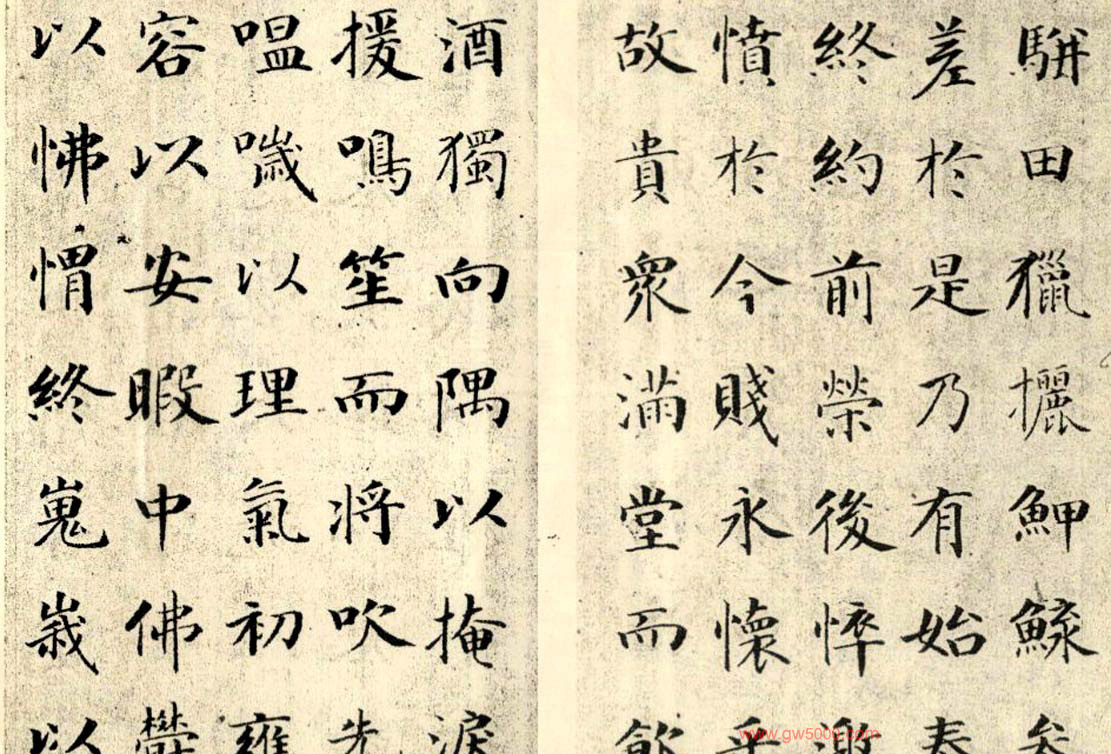 駢田獵攦魻鱢參
差於是乃有始泰
終約前榮後悴激
憤於今賤永懷乎
故貴衆滿堂而飲
酒獨向隅以掩淚
援鳴笙而将吹先
嗢噦以理氣初雍
容以安暇中佛鬱
以怫愲終嵬峩以
www.gw5000.com